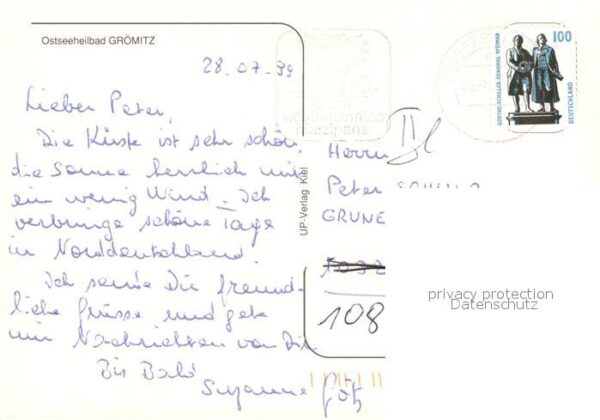 Ostseeheilbad GRÖMITZ
28.07.99
Lieber Peter,
Die Küste ist sehr schön,
die Sonne herrlich mit
ein wenig Wind. Ich
verbringe schöne Tage
in Norddeutschland.
Ich sende Dir freund-
liche Grüsse und gebe
mir Nachrichten von Dir.
Bis Bald
Susanne
UP-Verlag Kiel
GOETHE-SCHILLER-DENKMAL WEIMAR
100
DEUTSCHLAND
Herrn
Peter
GRUNE
108
privacy protection
Datenschutz